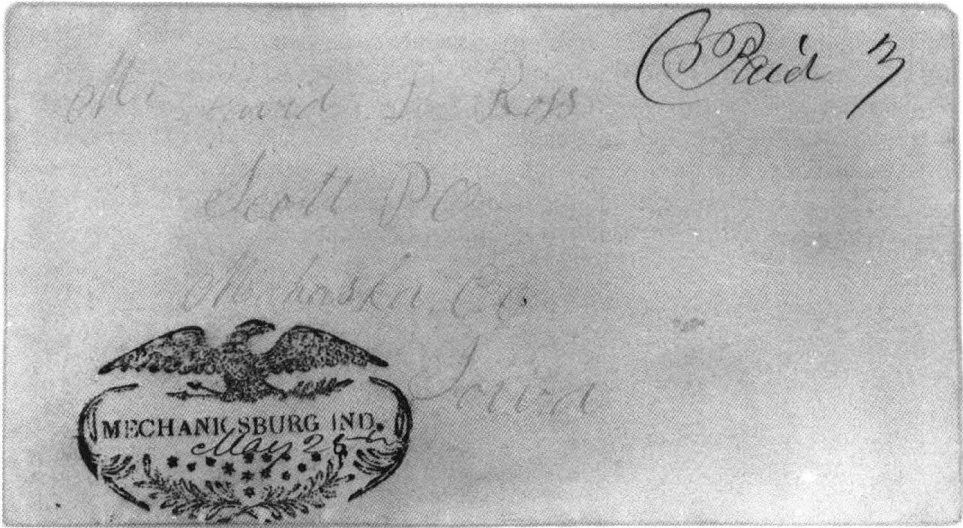 Paid 3
Mr David D. Ross
Scott P O
Mahaska Co.
Iowa
MECHANICSBURG IND.
May 28th